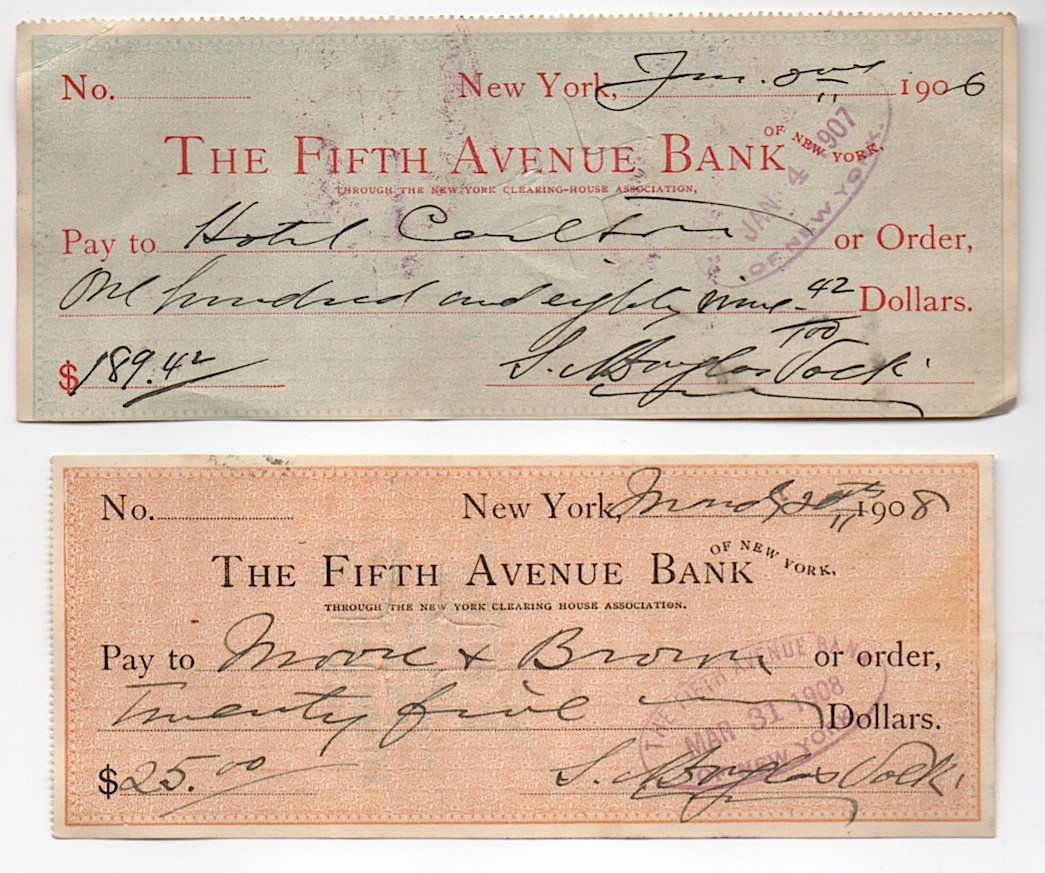 No. New York, Jan. 2nd 1906
THE FIFTH AVENUE BANK OF NEW YORK,
THROUGH THE NEW YORK CLEARING-HOUSE ASSOCIATION,
JAN 4 1907
OF NEW YORK
Pay to Hotel Carlton or Order,
One hundred and eighty nine 42/100 Dollars.
$189.42
No. New York, 1908
THE FIFTH AVENUE BANK OF NEW YORK,
THROUGH THE NEW YORK CLEARING HOUSE ASSOCIATION.
Pay to Moore & Brown or order,
THE FIFTH AVENUE BANK
MAR 31 1908
NEW YORK
Twenty five Dollars.
$25.00